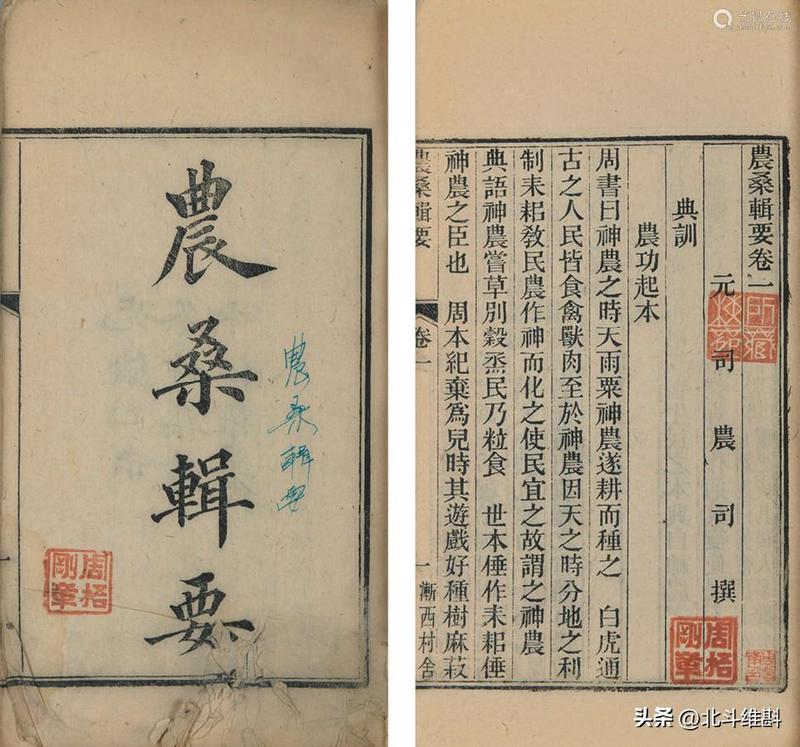 農桑輯要
農桑輯要
周梧
剛章
農桑輯要卷一
元司農司撰
典訓
農功起本
周書曰神農之時天雨粟神農遂耕而種之 白虎通
古之人民皆食禽獸肉至於神農因天之時分地之利
制耒耜教民農作神而化之使民宜之故謂之神農
典語神農嘗草別穀烝民乃粒食 世本倕作耒耜倕
神農之臣也 周本紀棄為兒時其遊戲好種樹麻菽
農桑輯要
卷一
一
漸西村舍
所藏
周梧
剛章
头条 @北斗维斟